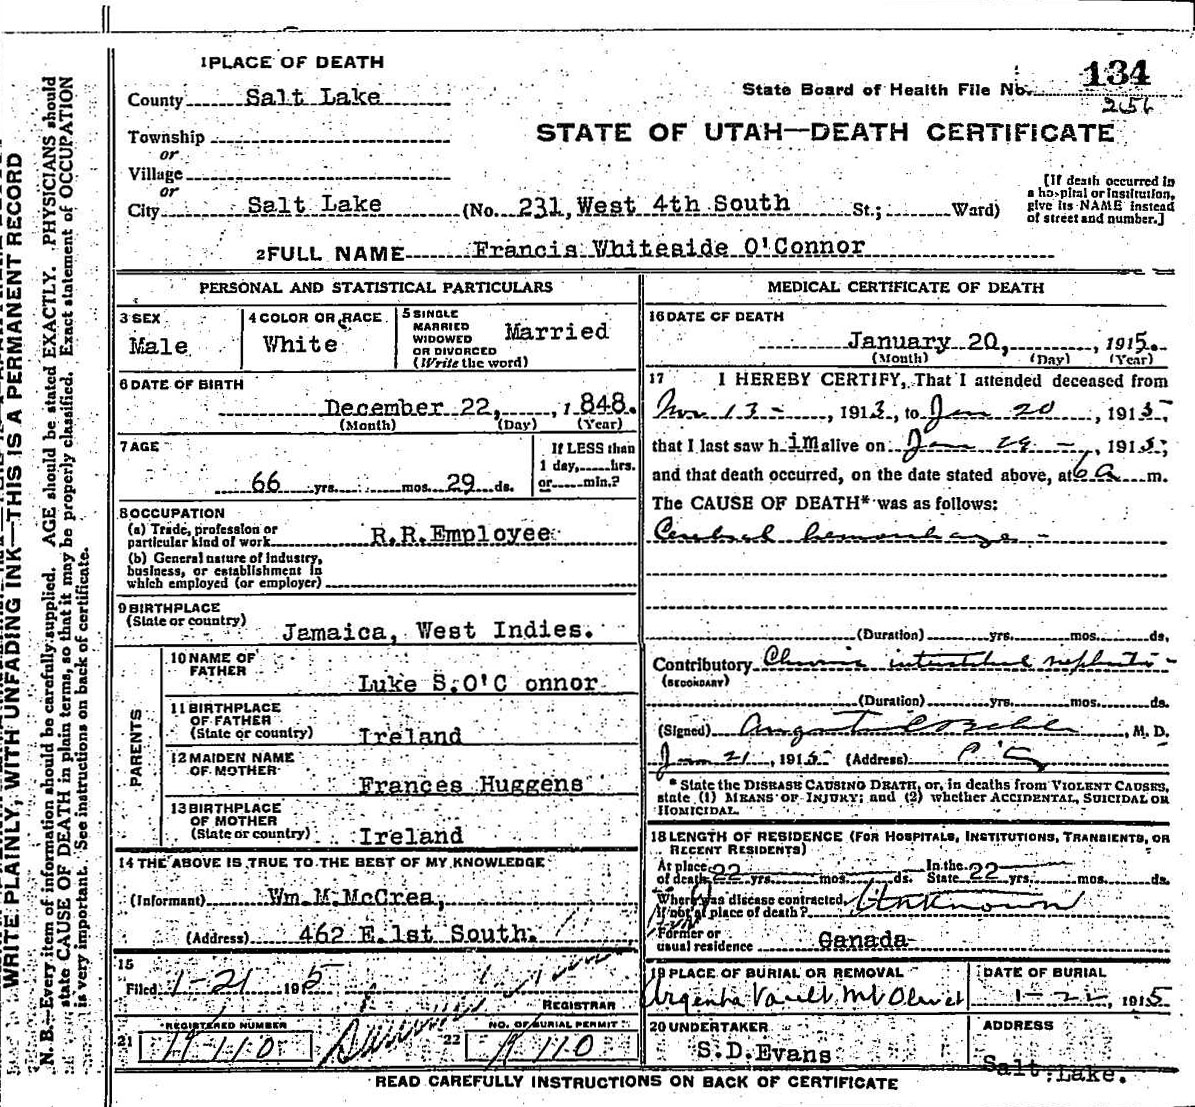 1 PLACE OF DEATH
County Salt Lake
Township
or
Village
or
City Salt Lake (No. 231, West 4th South St.; Ward)
State Board of Health File No. 134
256
STATE OF UTAH—DEATH CERTIFICATE
[If death occurred in
a hospital or institution,
give its NAME instead
of street and number.]
2 FULL NAME Francis Whiteside O'Connor
PERSONAL AND STATISTICAL PARTICULARS
3 SEX
Male
4 COLOR OR RACE
White
5 SINGLE
MARRIED
WIDOWED
OR DIVORCED
(Write the word)
Married
6 DATE OF BIRTH
December 22, , 1848.
(Month) (Day) (Year)
7 AGE
66 yrs. mos. 29 ds.
If LESS than
1 day, hrs.
or min.?
8 OCCUPATION
(a) Trade, profession or
particular kind of work R.R.Employee
(b) General nature of industry,
business, or establishment in
which employed (or employer)
9 BIRTHPLACE
(State or country)
Jamaica, West Indies.
PARENTS
10 NAME OF
FATHER
Luke S.O'C onnor
11 BIRTHPLACE
OF FATHER
(State or country) Ireland
12 MAIDEN NAME
OF MOTHER
Frances Huggens
13 BIRTHPLACE
OF MOTHER
(State or country) Ireland
14 THE ABOVE IS TRUE TO THE BEST OF MY KNOWLEDGE
(Informant) Wm.M.McCrea,
(Address) 462 E.1st South.
15
Filed 1-21 1915
REGISTRAR
21 REGISTERED NUMBER
22 NO. OF BURIAL PERMIT
MEDICAL CERTIFICATE OF DEATH
16 DATE OF DEATH
January 20, , 1915.
(Month) (Day) (Year)
17 I HEREBY CERTIFY, That I attended deceased from
Nov 13 - , 1913, to Jan 20 , 1915,
that I last saw him alive on Jan , 1915,
and that death occurred, on the date stated above, at 6 a m.
The CAUSE OF DEATH* was as follows:
Cerebral hemorrhage -
(Duration) yrs. mos. ds.
Contributory Chronic interstitial nephritis -
(SECONDARY)
(Duration) yrs. mos. ds.
(Signed) , M. D.
Jan 21 , 1915 (Address)
* State the DISEASE CAUSING DEATH, or, in deaths from VIOLENT CAUSES,
state (1) MEANS OF INJURY; and (2) whether ACCIDENTAL, SUICIDAL OR
HOMICIDAL.
18 LENGTH OF RESIDENCE (FOR HOSPITALS, INSTITUTIONS, TRANSIENTS, OR
RECENT RESIDENTS)
At place In the
of death 22 yrs. mos. ds. State 22 yrs. mos. ds.
Where was disease contracted,
if not at place of death? Unknown
Former or
usual residence Canada
19 PLACE OF BURIAL OR REMOVAL
Argenta Vault Mt Olivet
DATE OF BURIAL
1-22, 1915
20 UNDERTAKER
S.D.Evans
ADDRESS
Salt Lake.
READ CAREFULLY INSTRUCTIONS ON BACK OF CERTIFICATE
WRITE PLAINLY, WITH UNFADING INK—THIS IS A PERMANENT RECORD
N. B.—Every item of information should be carefully supplied. AGE should be stated EXACTLY. PHYSICIANS should
state CAUSE OF DEATH in plain terms, so that it may be properly classified. Exact statement of OCCUPATION
is very important. See instructions on back of certificate.